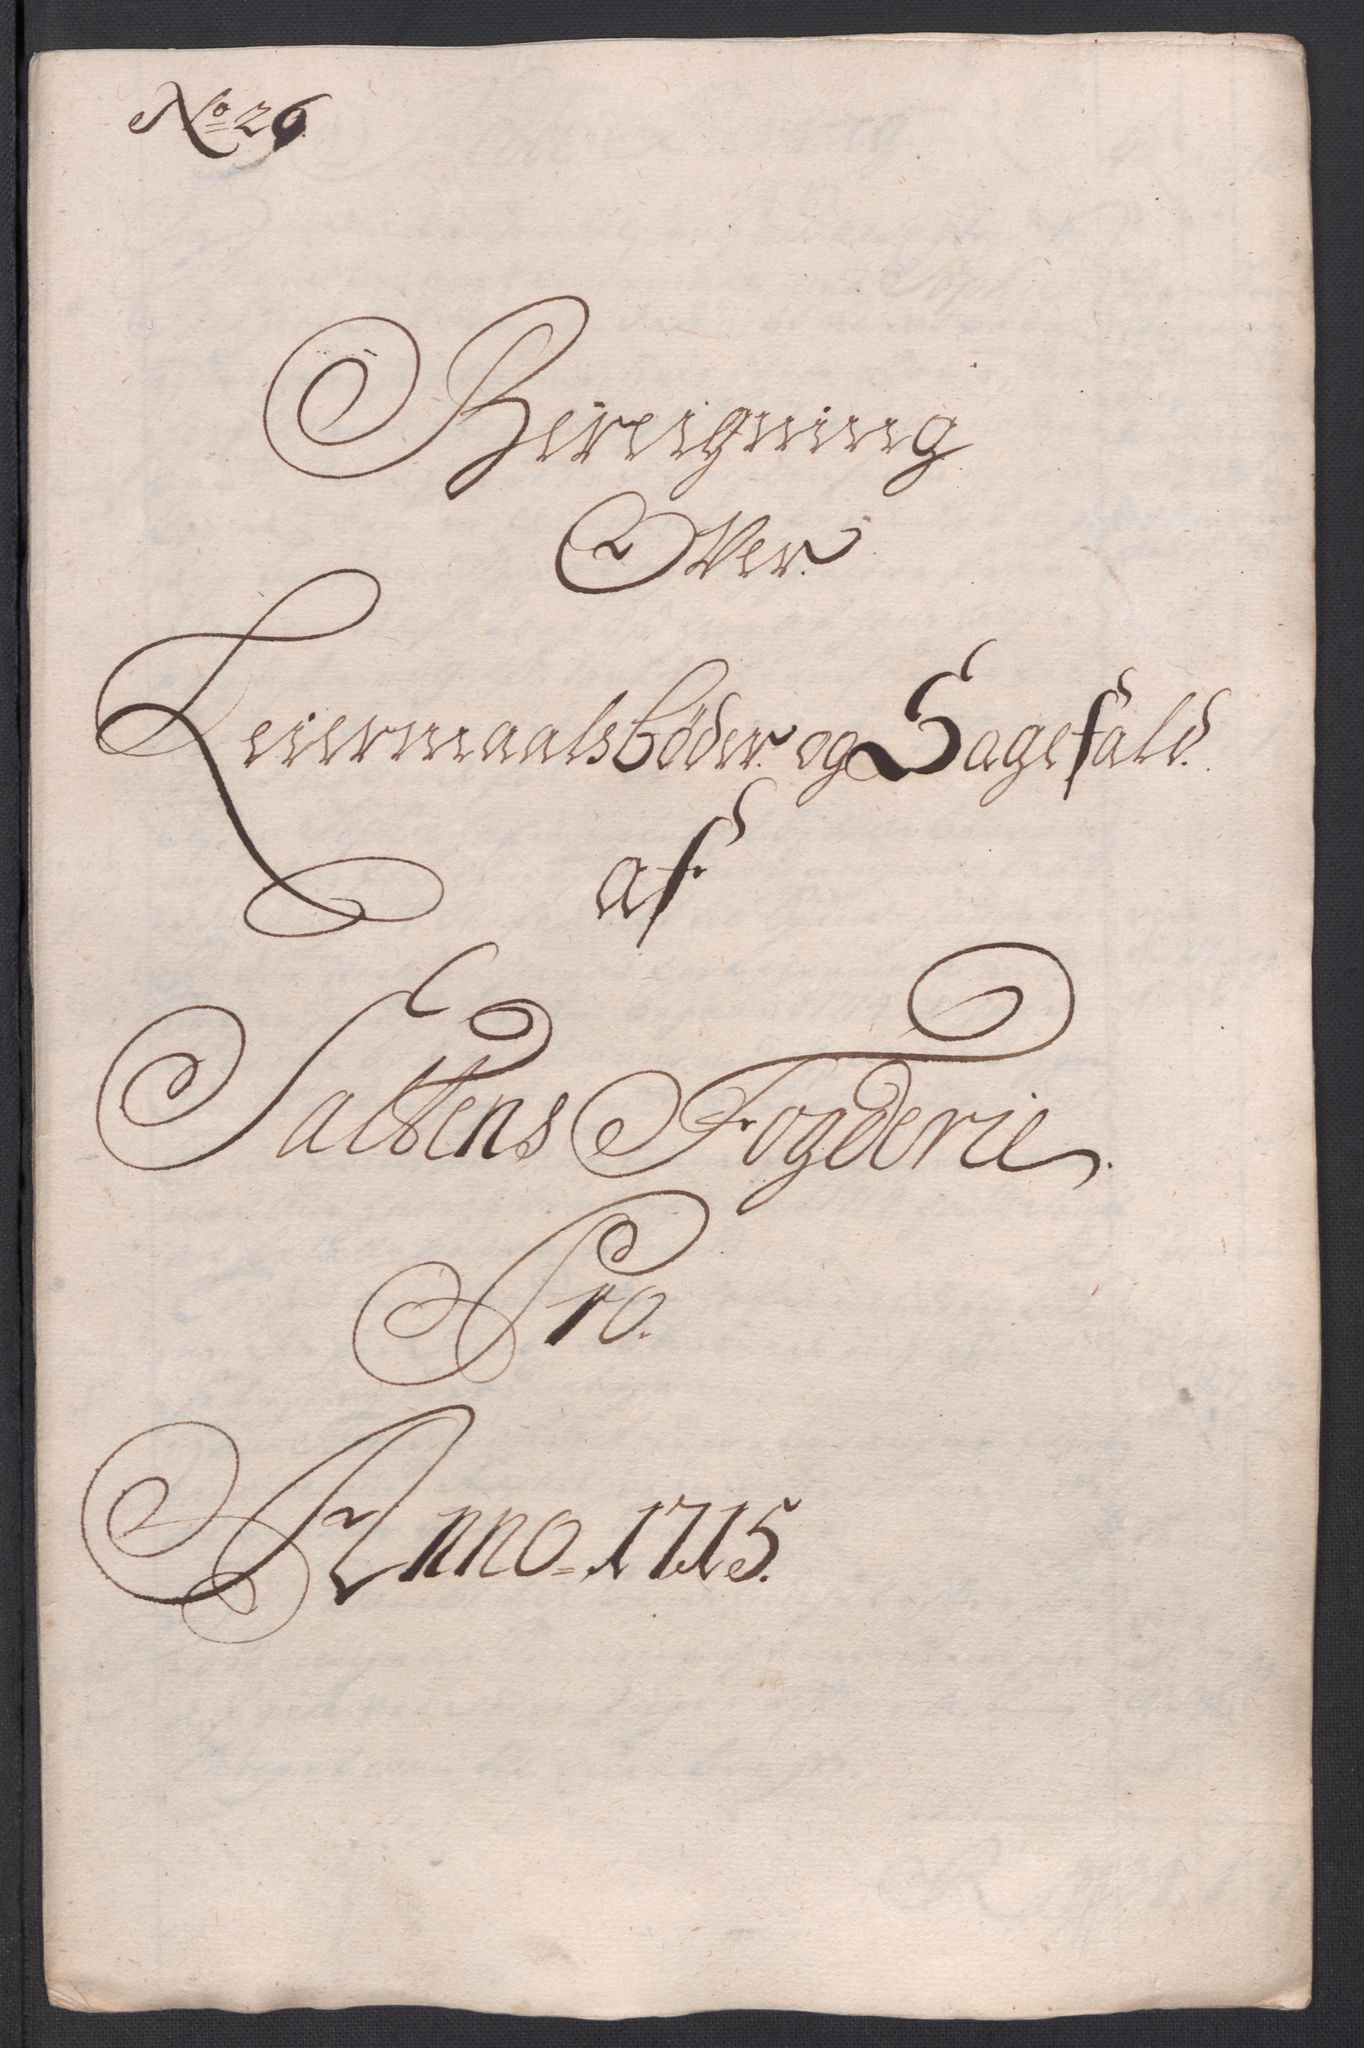 No 26
Bereigning
Over
Leiermaalsböder og Sagefald
af
Saltens Fogderie
Pro.
Anno = 1715.